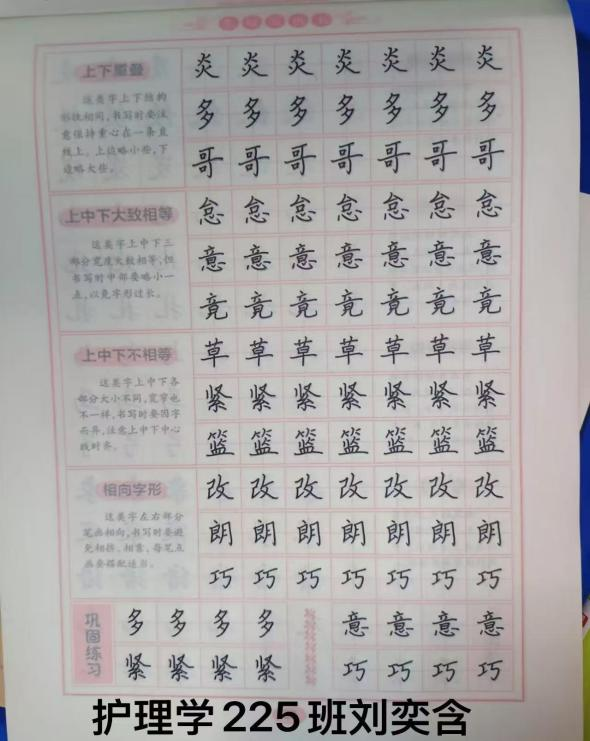 上下重叠
这类字上下结构
形状相同,书写时要注
意保持重心在一条直
线上。上边略小些,下
边略大些。
炎 炎 炎 炎 炎 炎 炎
多 多 多 多 多 多 多
哥 哥 哥 哥 哥 哥 哥
上中下大致相等
这类字上中下三
部分宽度大致相等,但
书写时中部要略小一
点,以免字形过长。
怠 怠 怠 怠 怠 怠 怠
意 意 意 意 意 意 意
竟 竟 竟 竟 竟 竟 竟
上中下不相等
这类字上中下各
部分大小不同,宽窄也
不一样,书写时要因字
而异,注意上中下中心
线对齐。
草 草 草 草 草 草 草
紧 紧 紧 紧 紧 紧 紧
篮 篮 篮 篮 篮 篮 篮
相向字形
这类字左右部分
笔画相向,书写时要避
免相挤、相靠,每笔点
画要搭配适当。
改 改 改 改 改 改 改
朗 朗 朗 朗 朗 朗 朗
巧 巧 巧 巧 巧 巧 巧
巩固练习
多 多 多 多 意 意 意 意
紧 紧 紧 紧 巧 巧 巧 巧
护理学225班刘奕含